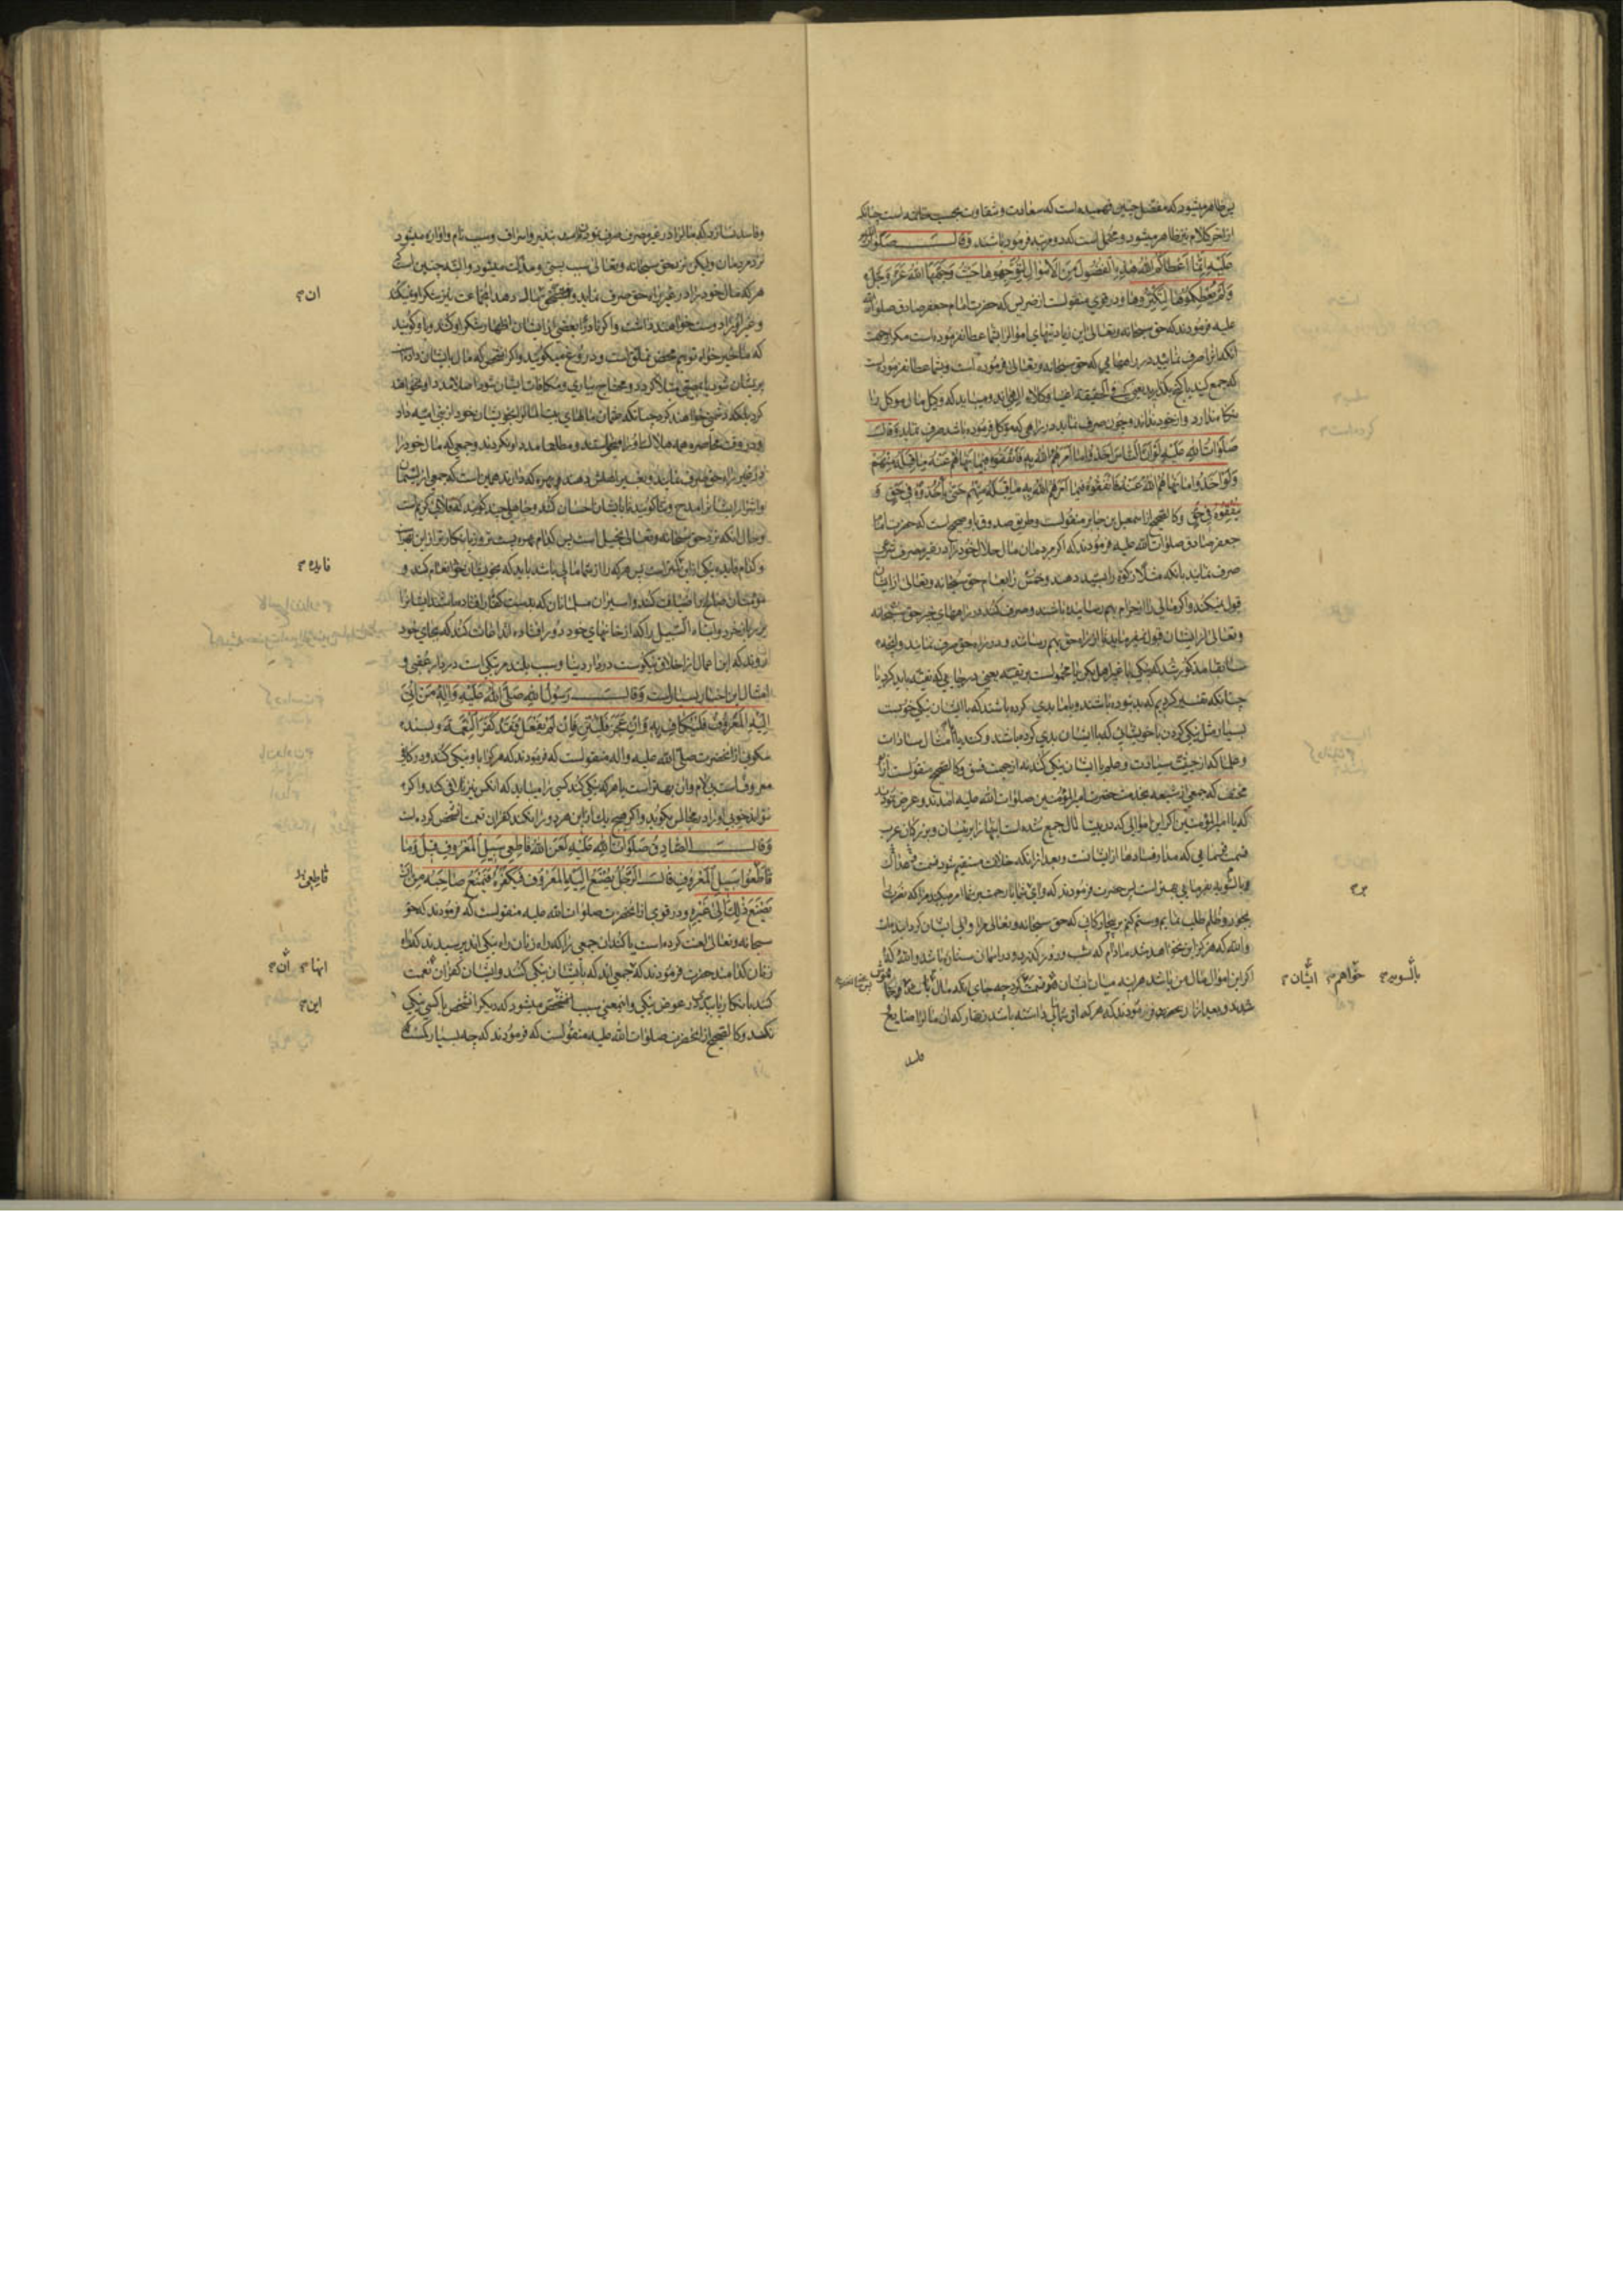 پس ظاهر میشود که مفضل چنین فهمیده است که سعادت و شقاوت بحسب خاتمه است چنانکه
از اخر کلام نیز ظاهر میشود و محتمل است که دو مرتبه فرموده باشند وقال صلوات الله
علیه انما اعطاکم الله هذه الفضول من الاموال لتوجهوها حیث وجهها الله عز وجل
ولم یعطکموها لتکنزوها و در قوی منقولست از ضریس که حضرت امام جعفر صادق صلوات الله
علیه فرمودند که حق سبحانه و تعالی این زیادتیهای اموال را بشما عطا نفرموده است مگر از جهت
انکه انرا صرف نمایید در راههایی که حق سبحانه و تعالی فرموده است و بشما عطا نفرموده است
که جمع کنید یا گنج بگذارید یعنی فی الحقیقة اغنیا وکلاء الهی اند و میباید که وکیل مال موکل را
نگاه ندارد و از خود نداند و چون صرف نماید در راهی که موکل فرموده باشد صرف نماید وقال
صلوات الله علیه لو ان الناس اخذوا ما امرهم الله به فانفقوه فیما نهاهم عنه ما قبله منهم
ولو اخذوا ما نهاهم الله عنه فانفقوه فیما امرهم الله به ما قبله منهم حتی یاخذوه فی حق و
ینفقوه فی حق و کالصحیح از اسمعیل بن جابر منقولست و طریق صدوق باو صحیح است که حضرت امام
جعفر صادق صلوات الله علیه فرمودند که اگر مردمان مال حلال خود را در غیر مصرف شرعی
صرف نمایند بانکه مثلا زکوة را بسید دهند و خمس را بعام حق سبحانه و تعالی از ایشان
قبول نمیکند و اگر مالی را از حرام بهم رسانیده باشند و صرف کنند در راههای خیر حق سبحانه
و تعالی از ایشان قبول نمیفرماید تا از راه حق بهم رسانند و در راه حق صرف نمایند و انچه
سابقا مذکور شد که نیکی با غیر اهل بکن یا محمولست بر تقیه یعنی در جایی که تقیه باید کرد یا
چنانکه تفسیر کردیم که بد نبوده باشند و با ما بدی کرده باشند که با ایشان نیکی خوبست
بسیار مثل نیکی کردن با خویشانی که با ایشان بدی کرده باشند و کنند یا امثال سادات
و علما که از حیثیت سیادت و علم با ایشان نیکی کنند نه از جهت فسق و کالصحیح منقولست از ابی
مخنف که جمعی از شیعه بخدمت حضرت امیر المؤمنین صلوات الله علیه امدند و عرض نمودند
که یا امیر المؤمنین اگر این اموالی که در بیت المال جمع شده است اینها را بر رئیسان و بزرگان عرب
قسمت نمایی که مدار فسادها از ایشانست و بعد از انکه خلافت مستقیم شود قسمت
بالسویه بفرمایی بهتر است پس حضرت فرمودند که وای بر شما باد رحمت بر شما امر میکنید مرا که نصرت
بجور و ظلم طلب نمایم و ستم کنم بر بیچارگانی که حق سبحانه و تعالی مرا والی ایشان گردانیده است
والله که هرگز این نخواهد شد مادام که شب و روز میگذرد و در اسمان ستاره باشد والله که
اگر این اموال مال من باشد هر اینه میان ایشان قسمت کنم چه جای انکه مال
شدند و بعد از ان حضرت فرمودند که هر که از شما مالی داشته باشد زنهار که ان مال را ضایع
بالسویه
خواهم
ایشان
و فاسد نسازد که مال را در غیر مصرف صرف نمودن تبذیر و اسراف و سبب نام و اوازه میشود
نزد مردمان ولیکن نزد حق سبحانه و تعالی سبب پستی و مذلت میشود و البته چنین است که
هر که مال خود را در غیر راه حق صرف نماید و بمستحقی نمیدهد ان جماعت نیز شکر او نمیکنند
و غیر او را دوست خواهند داشت و اگر نادرا بعضی از ایشان اظهار شکر او کنند و باو گویند
که ما خیر خواه توییم محض تملق است و دروغ میگویند و اگر شخصی که مال بایشان داده است
پریشان شود و محتاج بیاری و مکافات ایشان شود اصلا مدد او نخواهند
کرد بلکه دشمنی خواهند کرد چنانکه عثمان مالهای بیت المال را بخویشان خود از بنی امیه داد
و در وقت محاصره همه هلاک او را میخواستند و مطلقا مدد او نکردند و جمعی که مال خود را
در غیر راه حق صرف نمایند و بغیر اهلش دهند بهره که دارند همین است که جمعی از لئیمان
و اشرار ایشان را مدح و ثنا گویند تا با ایشان احسان کنند و جاهلی چند گویند که فلانی کریم است
و حال انکه نزد حق سبحانه و تعالی بخیل است پس کدام بهره پست تر و زیانکارتر از این بهره است
و کدام فایده نیکی از این کمتر است پس هر که را از شما مالی باشد باید که بخویشان خود انعام کند و
مؤمنان صالح را ضیافت کند و اسیران مسلمانان که بدست کفار افتاده باشند ایشان را
باز خرد و ابناء السبیل را که از خانهای خود دور افتاده اند اعانت کند که بجای خود
روند که این اعمال از اخلاق نیکوست در دار دنیا و سبب بلند مرتبگی است در دار عقبی و
امثال این اخبار بسیار است وقال رسول الله صلی الله علیه واله من اتی
الیه المعروف فلیکاف به وان عجز فلیثن فان لم یفعل فقد کفر النعمة و بسند
سکونی از انحضرت صلی الله علیه واله منقولست که فرمودند که هر که با او نیکی کنند در کافی
معروف است بی لام و ان بهتر است یا هر که نیکی کند کسی را میباید که انکس نیز تلافی کند و اگر
نتواند خوبی او را در مجالس بگوید و اگر هیچ یک از این هر دو را نکند کفران نعمت انشخص کرده است
وقال الصادق صلوات الله علیه لعن الله قاطعی سبیل المعروف قیل وما
قاطعوا سبیل المعروف قال الرجل یصنع الیه المعروف فیکفره فیمنع صاحبه من ان
یصنع ذلک الی غیره و در قوی از انحضرت صلوات الله علیه منقولست که فرمودند که حق
سبحانه و تعالی لعنت کرده است یا کناد ان جمعی را که راه زنان راه نیکی اند پرسیدند که راه
زنان کدامند حضرت فرمودند که جمعی اند که با ایشان نیکی کنند و ایشان کفران نعمت
کنند یا انکار یا بدی در عوض نیکی و این معنی سبب این میشود که دیگر انشخص با کسی نیکی
نکند و کالصحیح از انحضرت صلوات الله علیه منقولست که فرمودند که چه بسیار کست که
ان
فایده
قاطعی
انها
ان
این